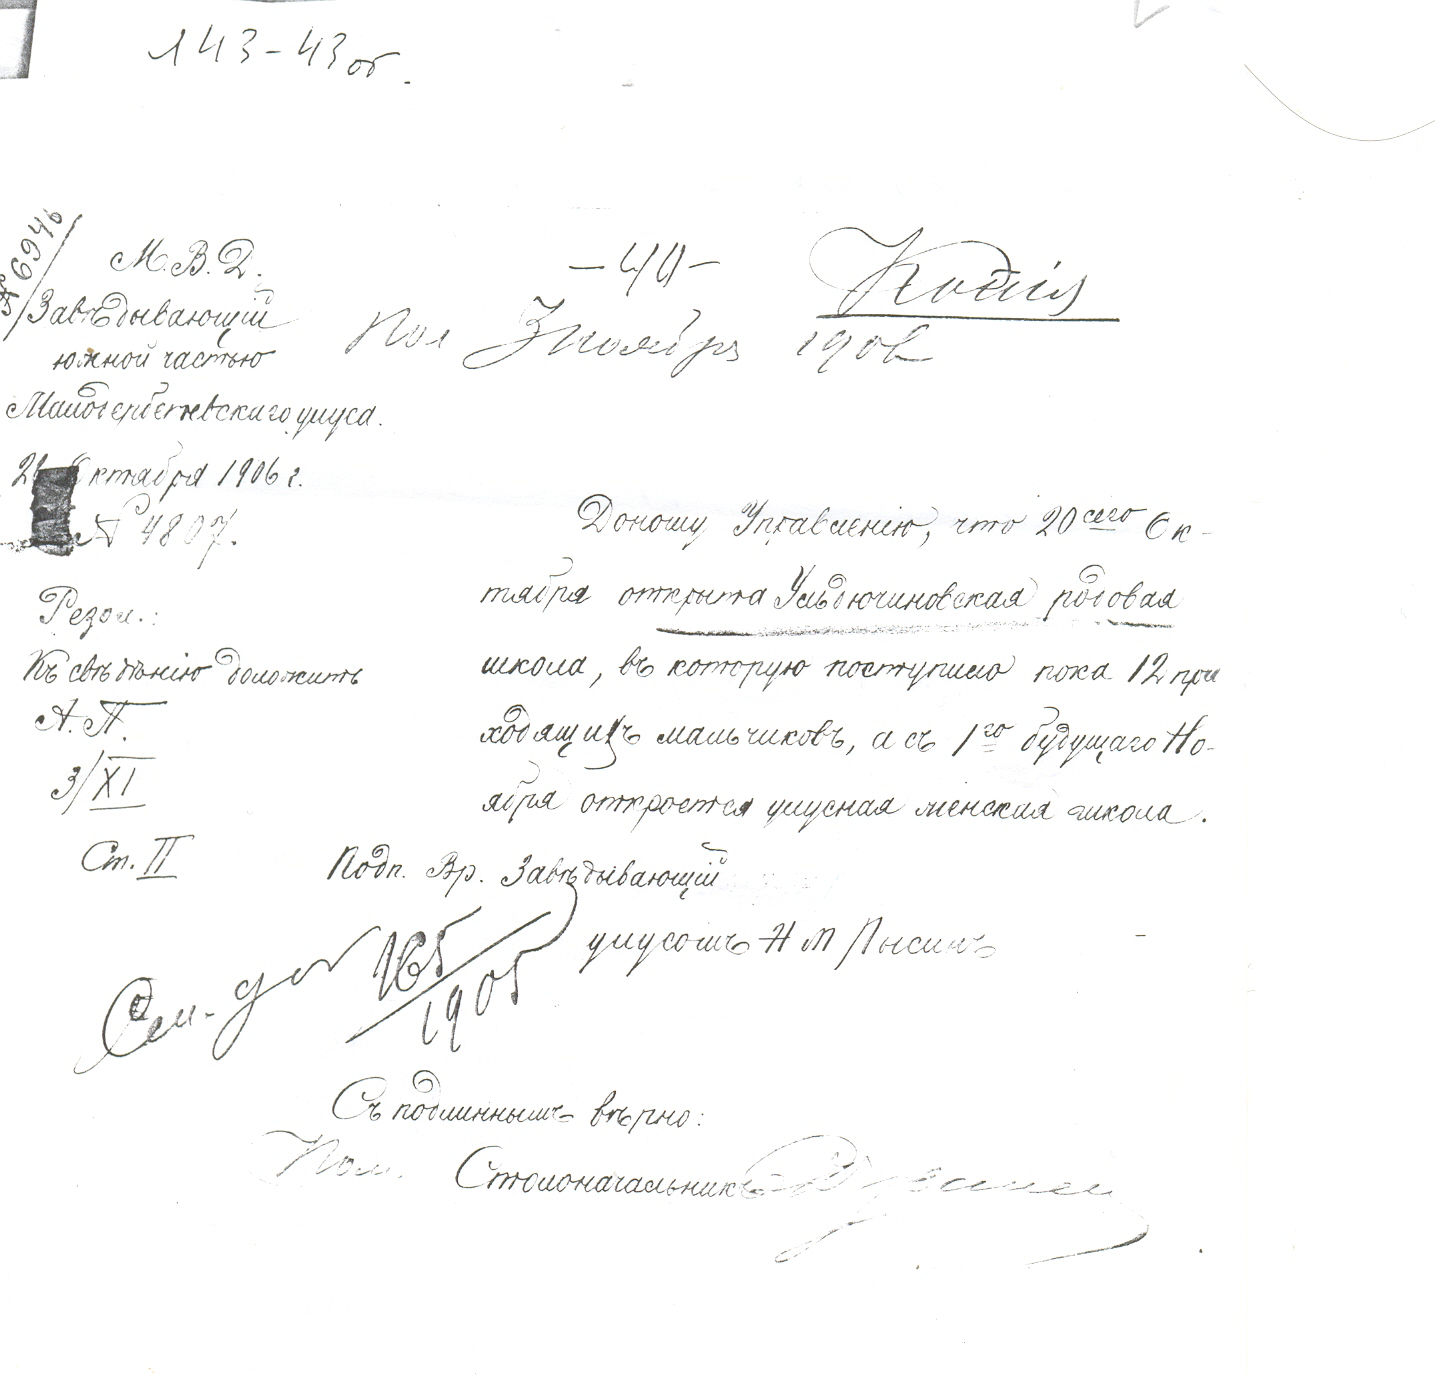 143-43 об.
№ 6946
М. В. Д.
Завѣдывающій
южной частью
Малодербетевскаго улуса.
Октября 1906 г.
№ 4807.
Резол.:
Къ свѣдѣнію доложить
А. П.
3/XI
Ст. II
- 40 -
Копія
Пол 3 ноября 1906
Доношу Управленію, что 20 сего Ок-
тября открыта Ульдючиновская родовая
школа, въ которую поступило пока 12 при
ходящихъ мальчиковъ, а съ 1го будущаго Но-
ября откроется улусная женская школа.
Подп. Вр. Завѣдывающій
улусомъ Н М Лысинъ
См. д 165/1905
Съ подлиннымъ вѣрно:
Пом. Столоначальника